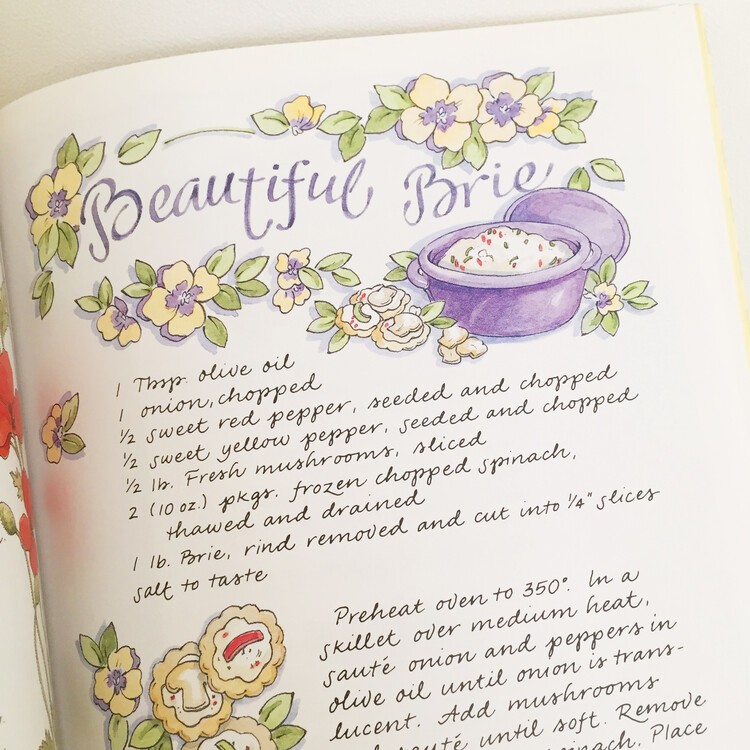 Beautiful Brie
1 Tbsp. olive oil
1 onion, chopped
½ sweet red pepper, seeded and chopped
½ sweet yellow pepper, seeded and chopped
½ lb. Fresh mushrooms, sliced
2 (10 oz.) pkgs. frozen chopped spinach,
thawed and drained
1 lb. Brie, rind removed and cut into ¼" slices
salt to taste
Preheat oven to 350°. In a
skillet over medium heat,
sauté onion and peppers in
olive oil until onion is trans-
lucent. Add mushrooms
sauté until soft. Remove
Place